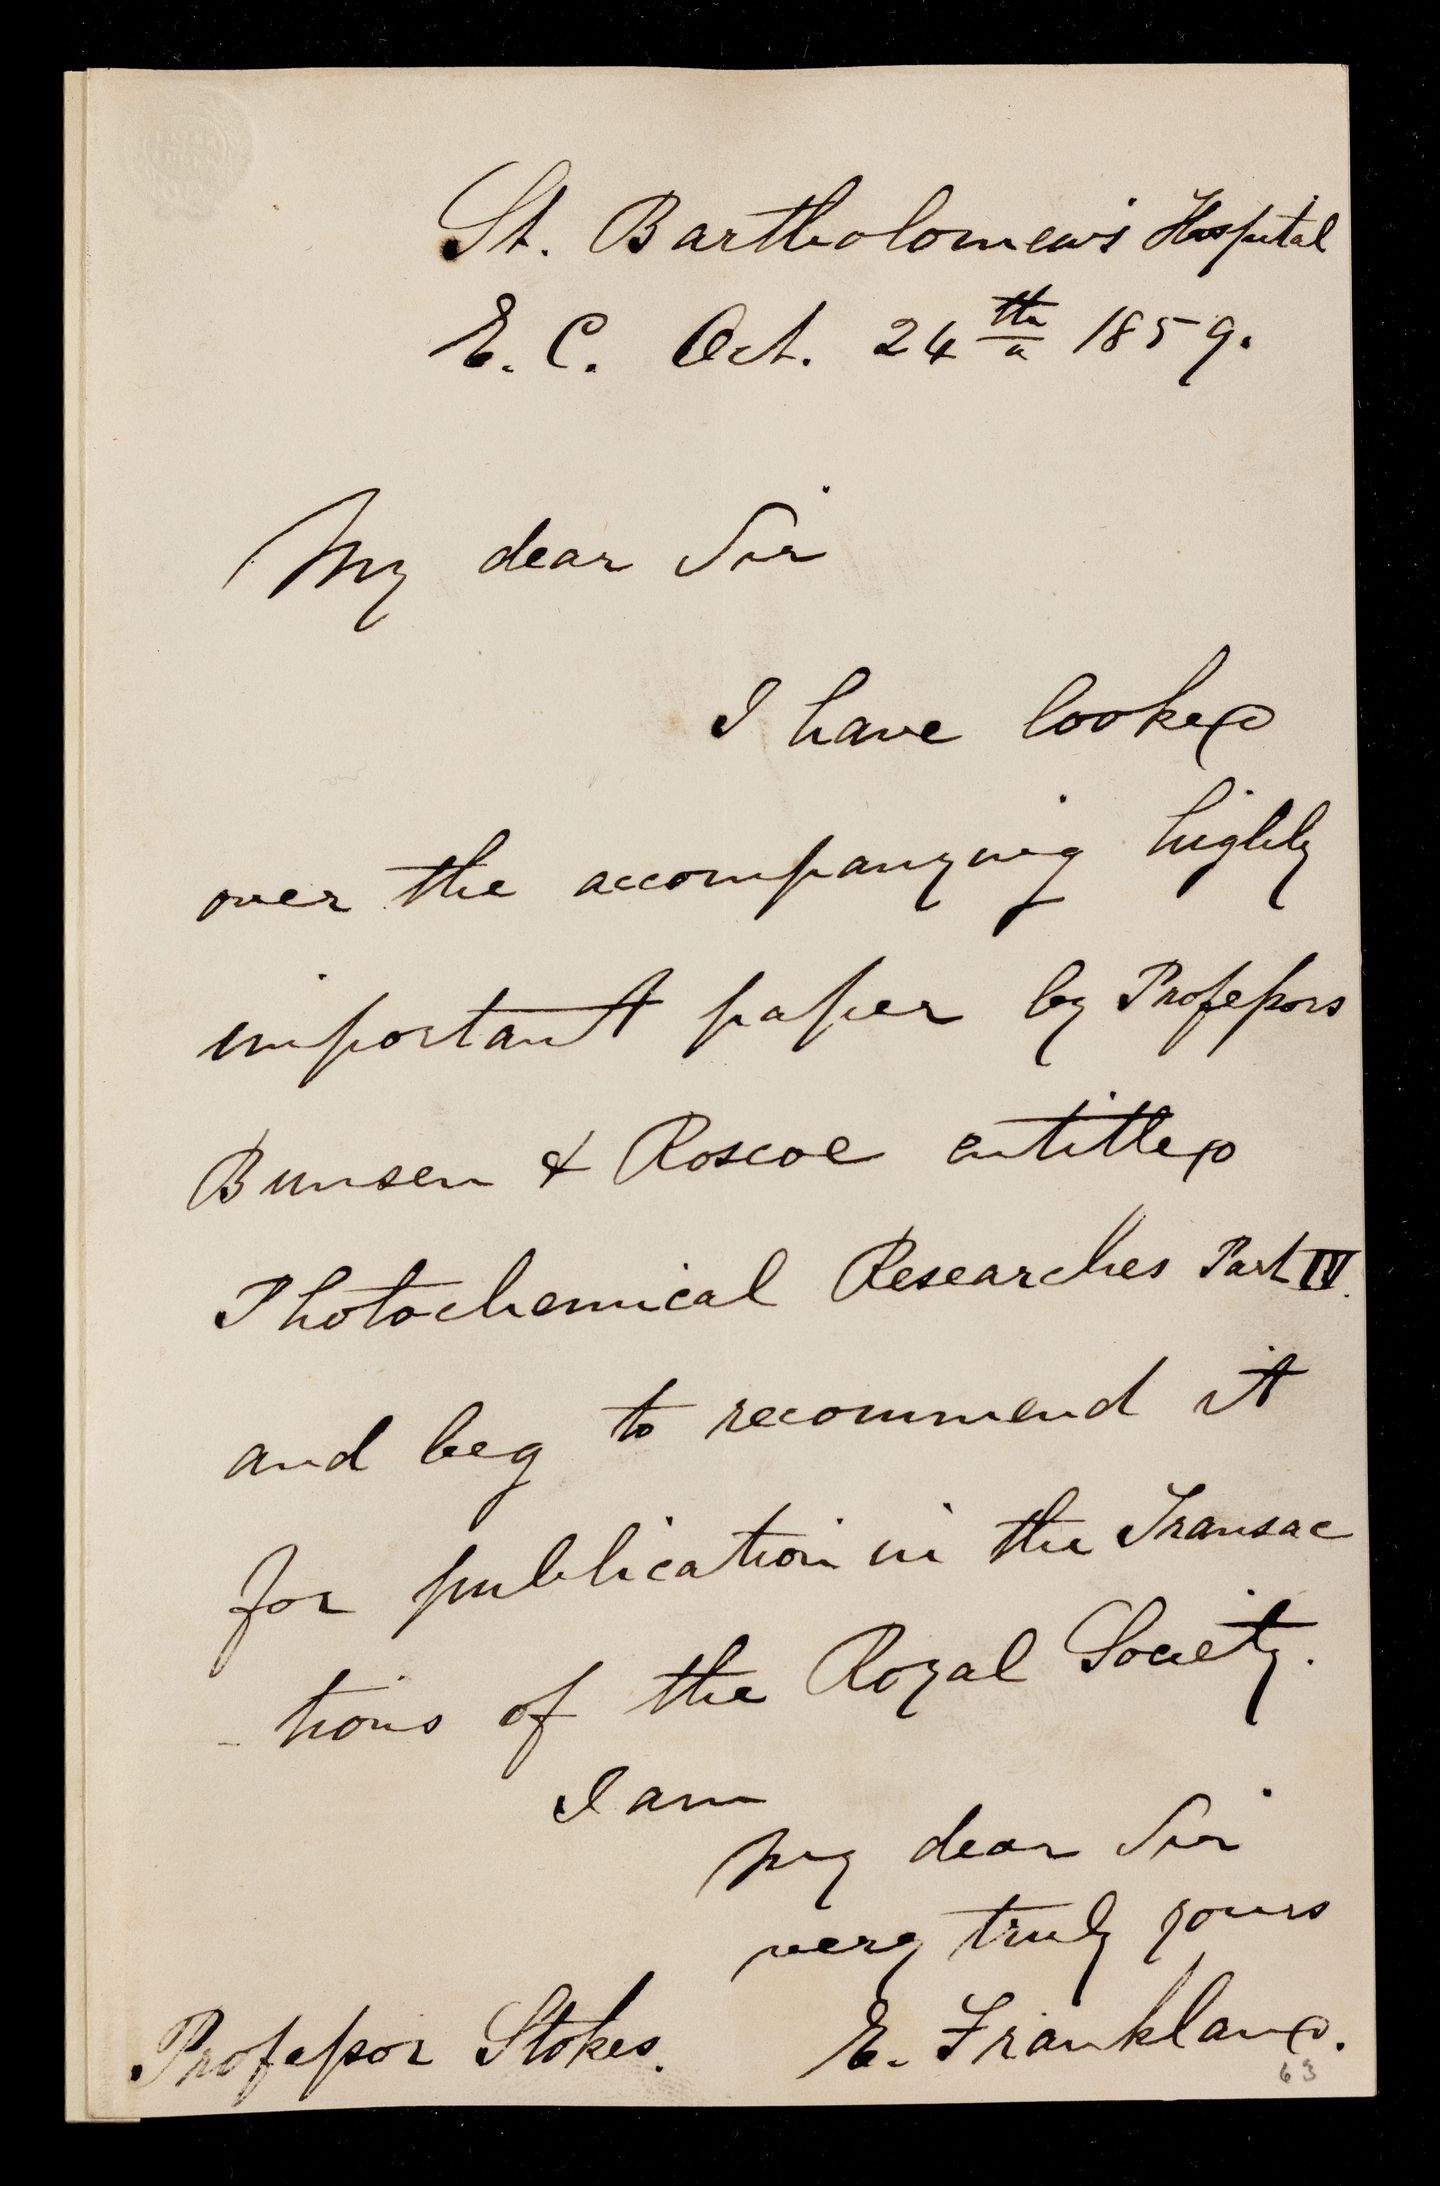 St. Bartholomew's Hospital
E. C. Oct. 24th 1859.
My dear Sir
I have looked
over the accompanying highly
important paper by Professors
Bunsen & Roscoe entitled
Photochemical Researches Part IV.
and beg to recommend it
for publication in the Transac
-tions of the Royal Society.
I am
my dear Sir
very truly yours
E. Frankland.
Professor Stokes.
63